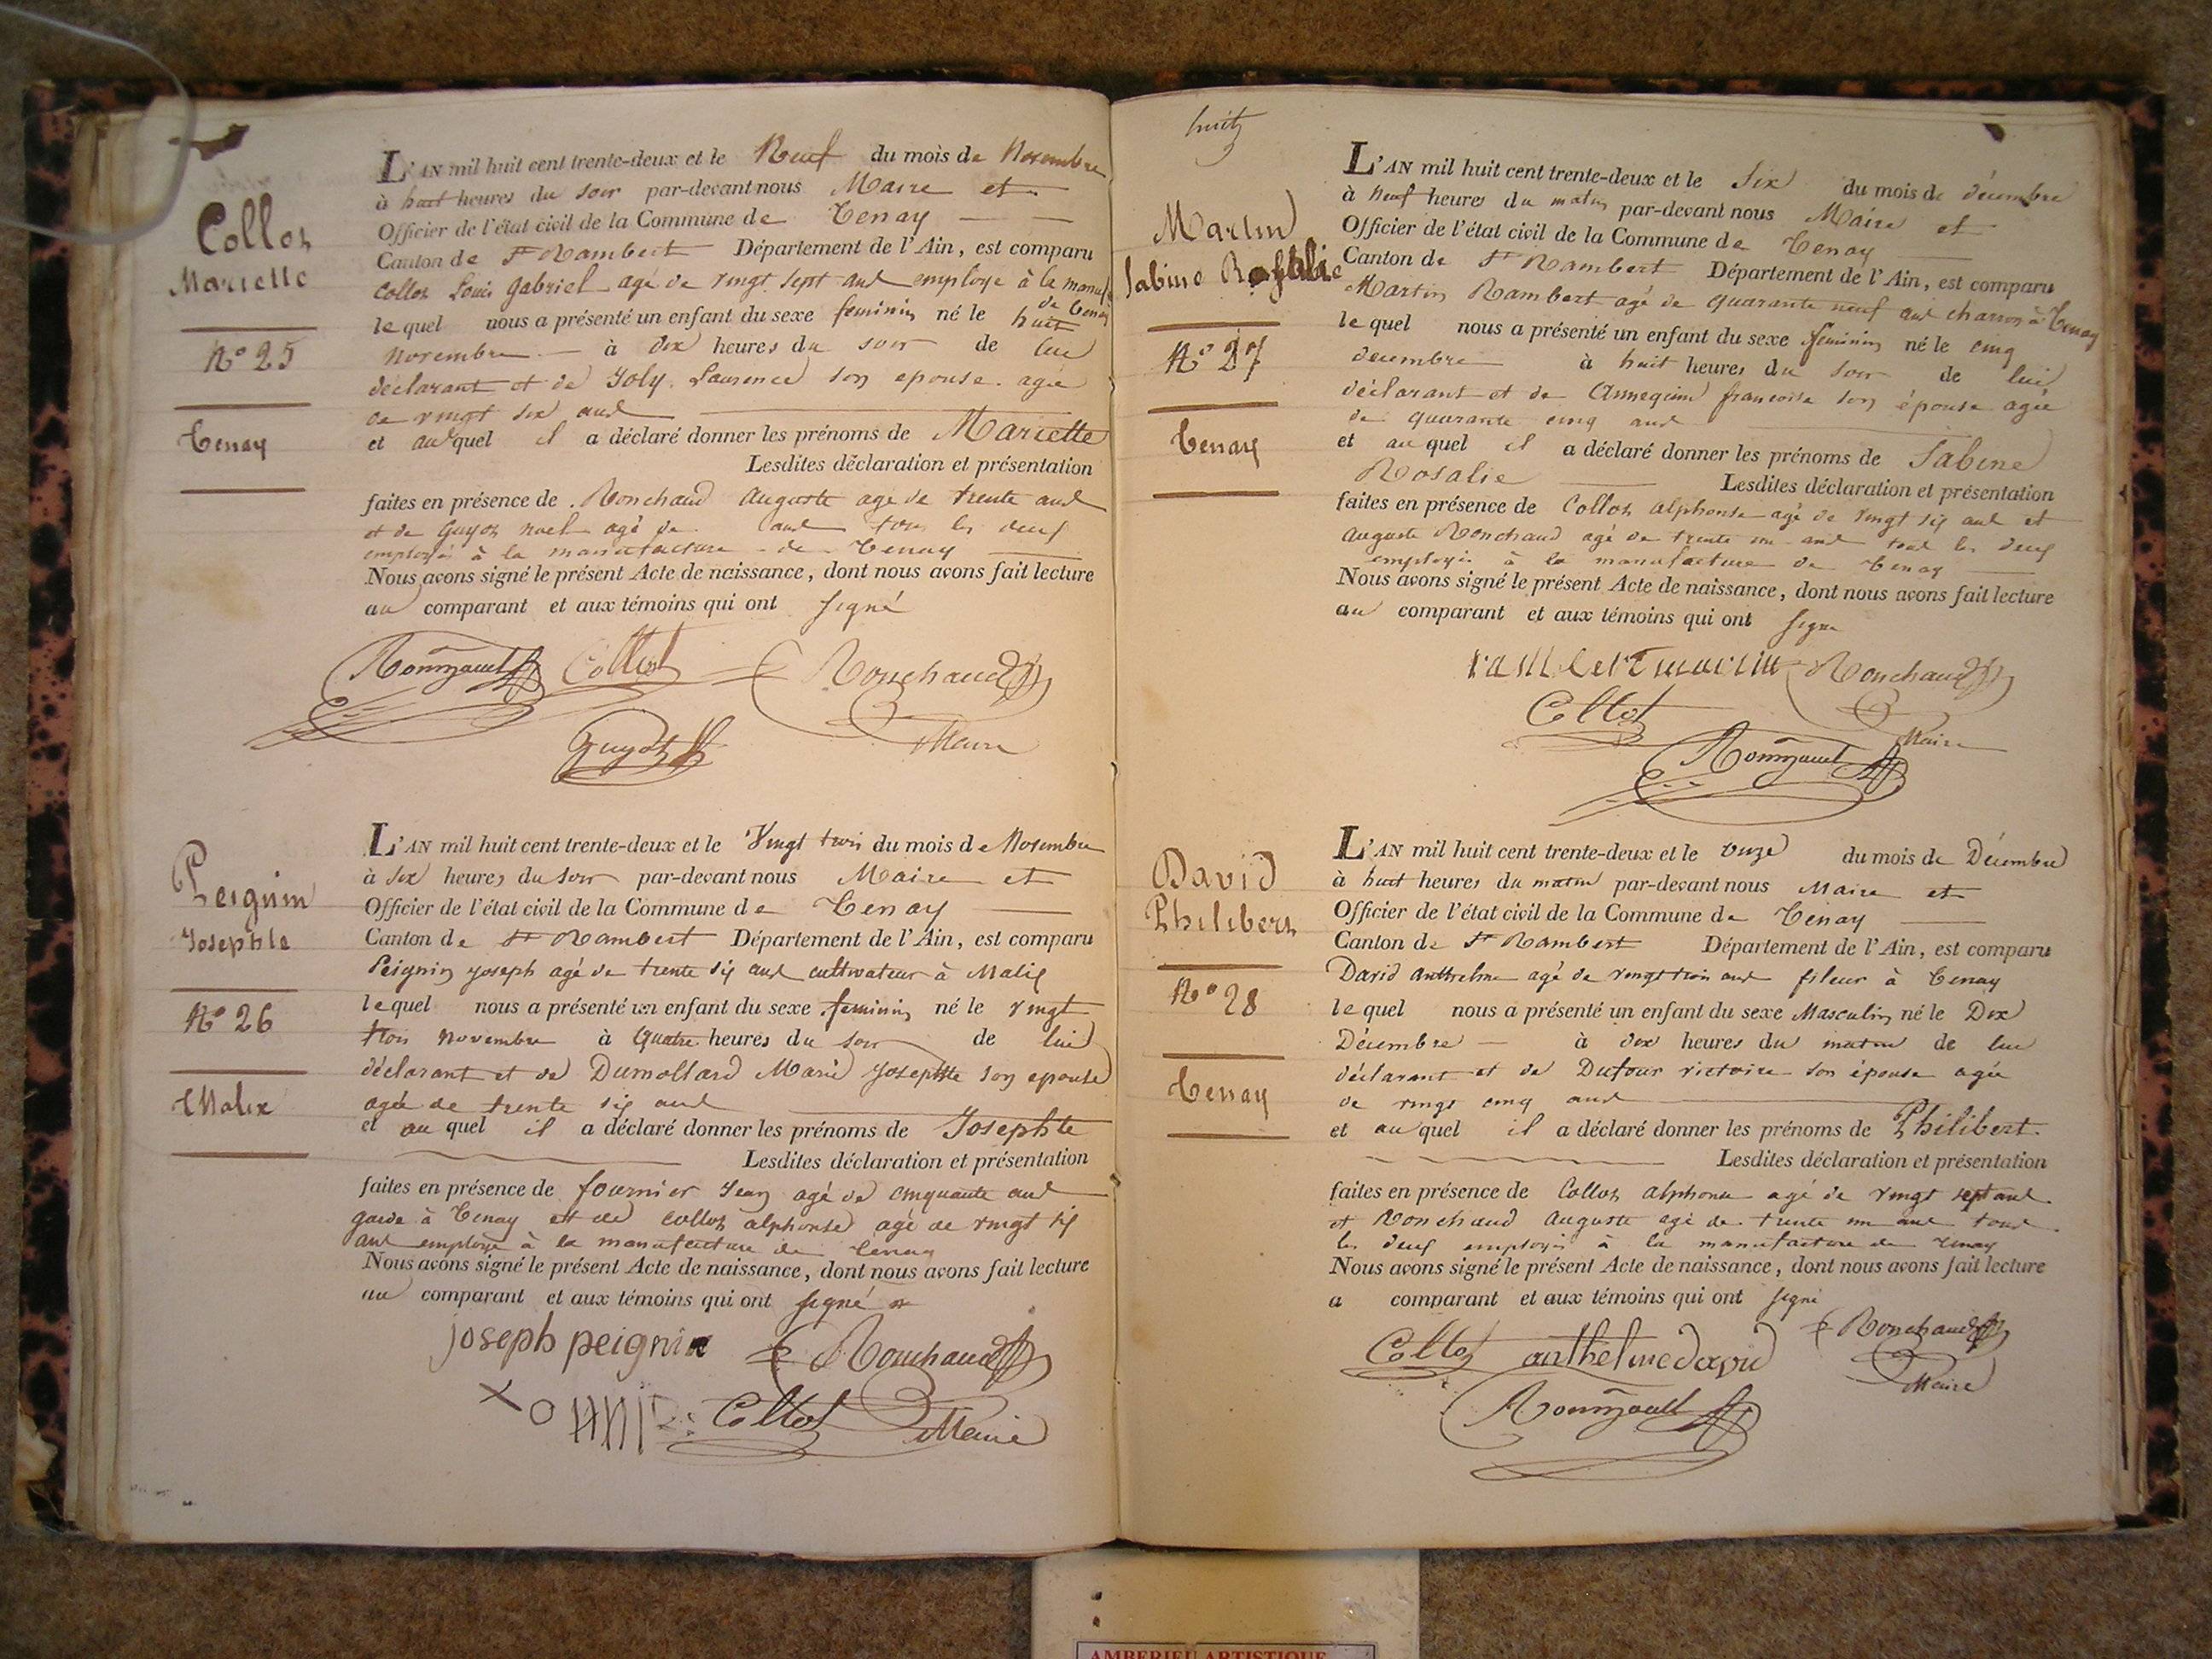 Collot
Mariette
N° 25
Tenay
L'AN mil huit cent trente-deux et le Neuf du mois de Novembre
à huit heures du soir par-devant nous Maire et
Officier de l'état civil de la Commune de Tenay
Canton de St Rambert Département de l'Ain, est comparu
Collot Louis Gabriel agé de vingt sept ans employé à la manuf.
de Tenay
le quel nous a présenté un enfant du sexe feminin né le huit
Novembre à dix heures du soir de lui
déclarant et de Joly Laurence son epouse agée
de vingt six ans
et au quel il a déclaré donner les prénoms de Mariette
Lesdites déclaration et présentation
faites en présence de Ronchaud Auguste agé de trente ans
et de Guyot Noel agé de ans tous les deux
employés à la manufacture de Tenay
Nous avons signé le présent Acte de naissance, dont nous avons fait lecture
au comparant et aux témoins qui ont signé
Collot Ronchaud
Guyot Maire
Peignin
Josephte
N° 26
Malix
L'AN mil huit cent trente-deux et le Vingt trois du mois de Novembre
à six heures du soir par-devant nous Maire et
Officier de l'état civil de la Commune de Tenay
Canton de St Rambert Département de l'Ain, est comparu
Peignin Joseph agé de trente six ans cultivateur à Malix
le quel nous a présenté un enfant du sexe feminin né le vingt
trois novembre à quatre heures du soir de lui
déclarant et de Dumollard Marie Josephte son epouse
agée de trente six ans
et au quel il a déclaré donner les prénoms de Josephte
Lesdites déclaration et présentation
faites en présence de fournier Jean agé de cinquante ans
garde à Tenay et de Collot alphonse agé de vingt six
ans employé à la manufacture de Tenay
Nous avons signé le présent Acte de naissance, dont nous avons fait lecture
au comparant et aux témoins qui ont signé
joseph peignin Ronchaud
Collot Maire
huit
Martin
Sabine Rosalie
N° 27
Tenay
L'AN mil huit cent trente-deux et le Six du mois de décembre
à Neuf heures du matin par-devant nous Maire et
Officier de l'état civil de la Commune de Tenay
Canton de St Rambert Département de l'Ain, est comparu
Martin Rambert agé de quarante neuf ans charron à Tenay
le quel nous a présenté un enfant du sexe feminin né le cinq
decembre à huit heures du soir de lui
déclarant et de Annequin francoise son épouse agée
de quarante cinq ans
et au quel il a déclaré donner les prénoms de Sabine
Rosalie Lesdites déclaration et présentation
faites en présence de Collot alphonse agé de vingt six ans et
Auguste Ronchaud agé de trente un ans tous les deux
employés à la manufacture de Tenay
Nous avons signé le présent Acte de naissance, dont nous avons fait lecture
au comparant et aux témoins qui ont signé
rambert martin Ronchaud
Collot Maire
David
Philibert
N° 28
Tenay
L'AN mil huit cent trente-deux et le onze du mois de Décembre
à huit heures du matin par-devant nous Maire et
Officier de l'état civil de la Commune de Tenay
Canton de St Rambert Département de l'Ain, est comparu
David anthelme agé de vingt trois ans fileur à Tenay
le quel nous a présenté un enfant du sexe Masculin né le Dix
Décembre à dix heures du matin de lui
déclarant et de Dufour victoire son épouse agée
de vingt cinq ans
et au quel il a déclaré donner les prénoms de Philibert.
Lesdites déclaration et présentation
faites en présence de Collot alphonse agé de vingt sept ans
et Ronchaud Auguste agé de trente un ans tous
les deux employés à la manufacture de Tenay
Nous avons signé le présent Acte de naissance, dont nous avons fait lecture
a comparant et aux témoins qui ont signé
Collot anthelme david Ronchaud
Maire
AMBERIEU ARTISTIQUE